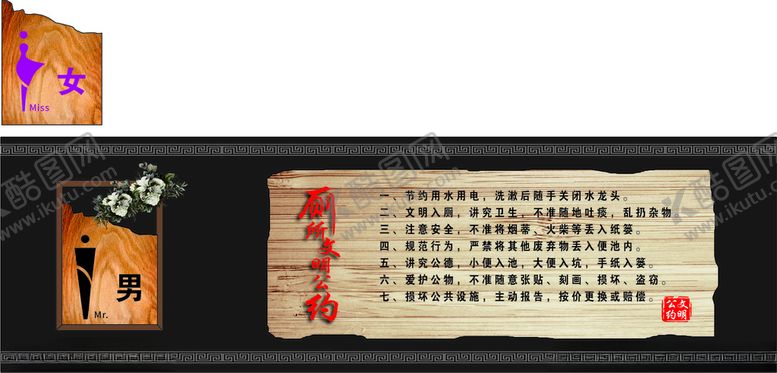 女
Miss
男
Mr.
厕所文明公约
一、节约用水用电，洗漱后随手关闭水龙头。
二、文明入厕，讲究卫生，不准随地吐痰，乱扔杂物。
三、注意安全，不准将烟蒂、火柴等丢入纸篓。
四、规范行为，严禁将其他废弃物丢入便池内。
五、讲究公德，小便入池，大便入坑，手纸入篓。
六、爱护公物，不准随意张贴、刻画、损坏、盗窃。
七、损坏公共设施，主动报告，按价更换或赔偿。
文明公约
酷图网
www.ikutu.com